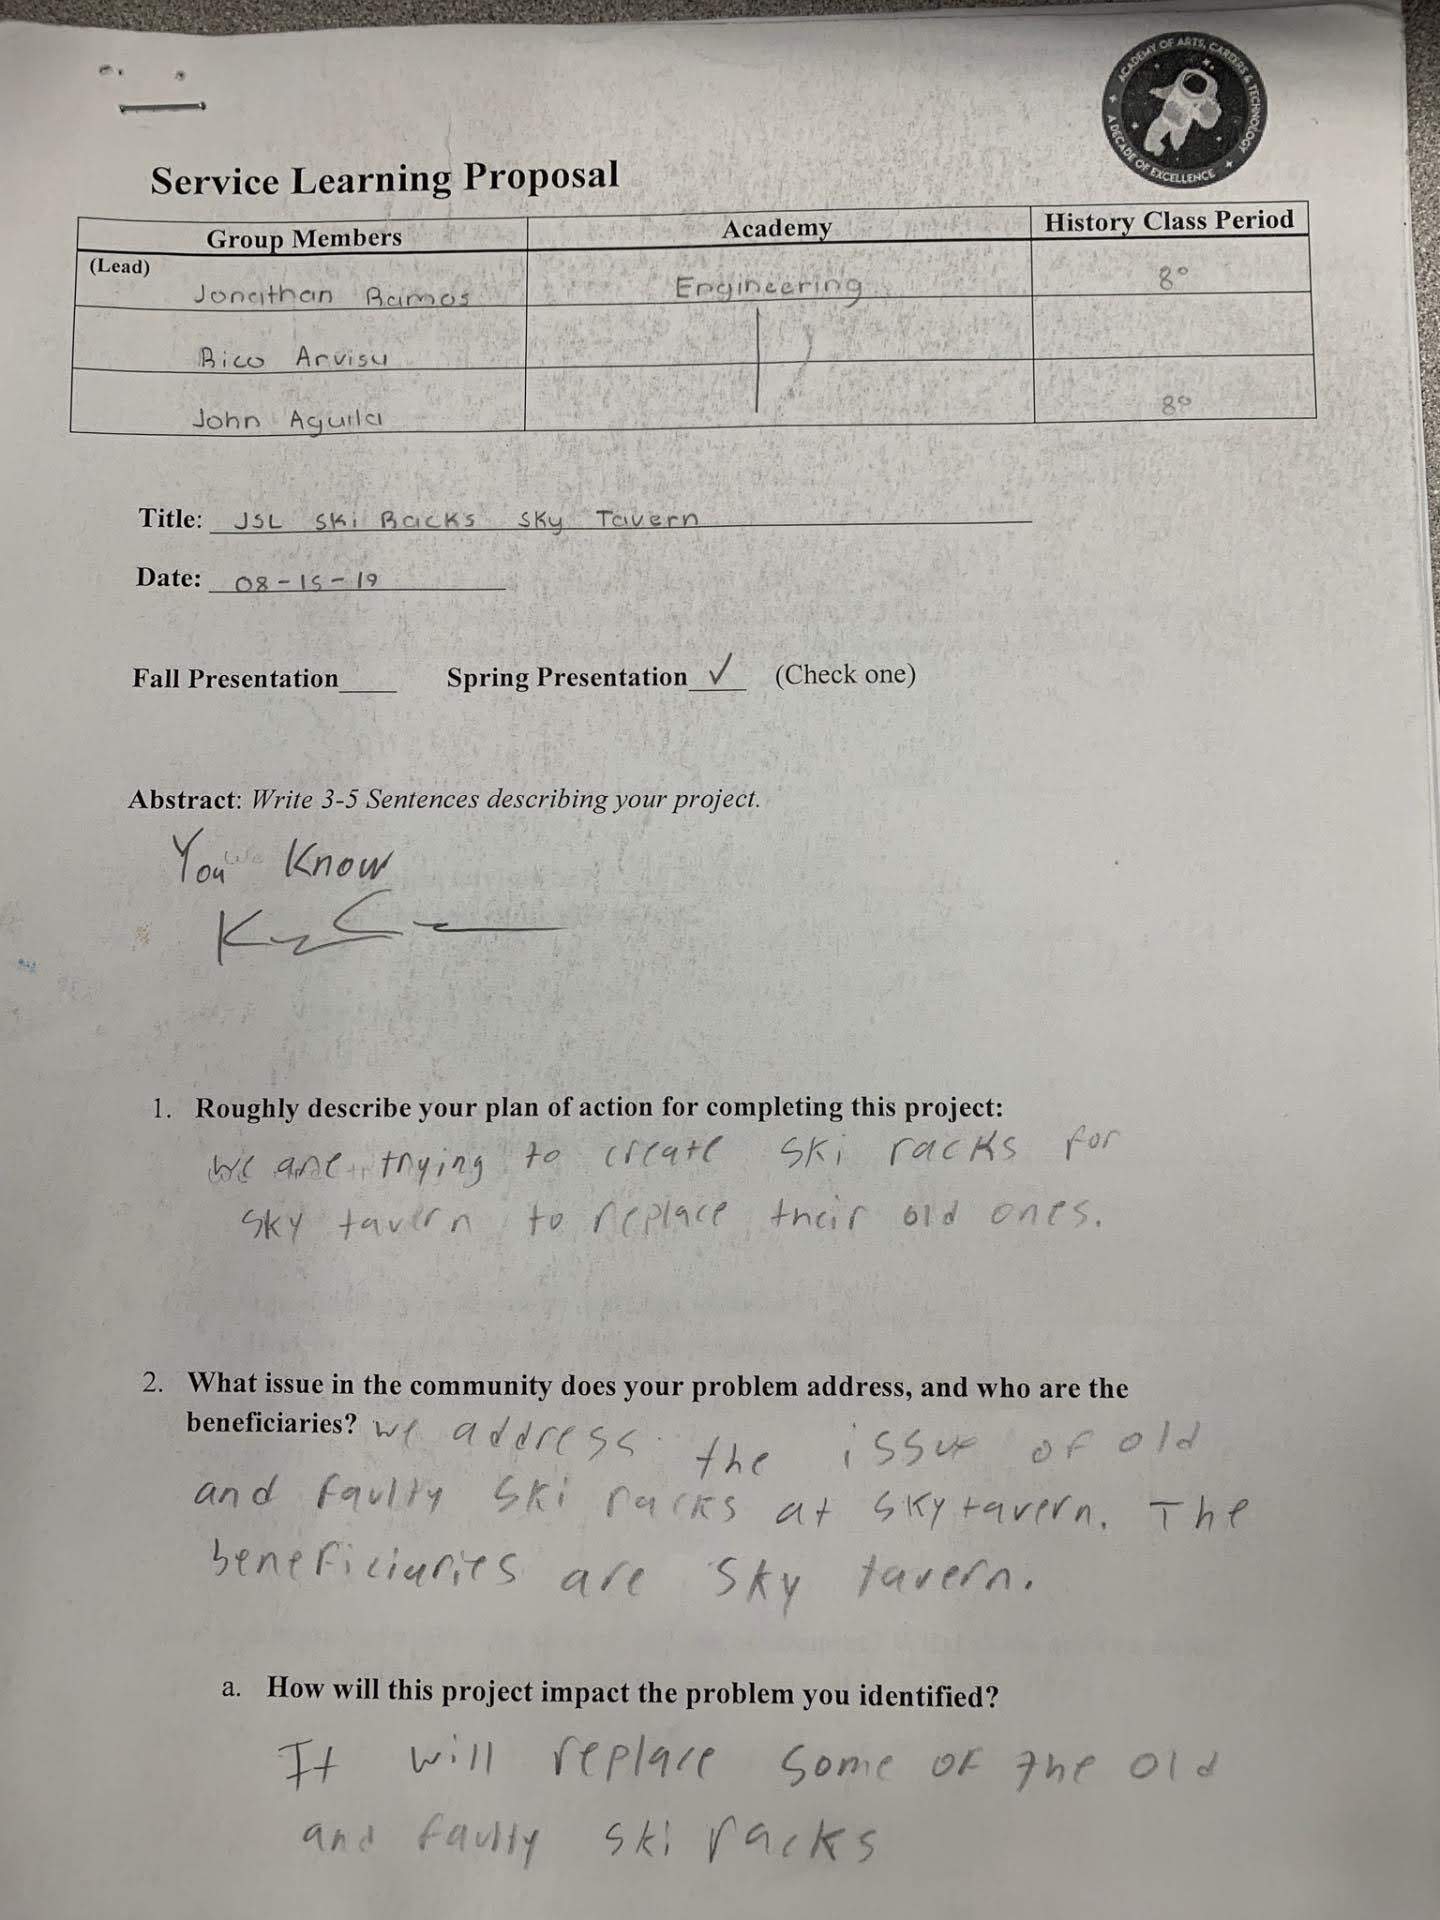 ACADEMY OF ARTS, CAREERS & TECHNOLOGY
A DECADE OF EXCELLENCE
Service Learning Proposal
Group Members Academy History Class Period
(Lead)
Jonathan Ramos Engineering 8°
Rico Arvisu
John Aguila 8°
Title: JSL Ski Racks Sky Tavern
Date: 08-15-19
Fall Presentation____ Spring Presentation ✓ (Check one)
Abstract: Write 3-5 Sentences describing your project.
You Know
1. Roughly describe your plan of action for completing this project:
We are trying to create ski racks for
sky tavern to replace their old ones.
2. What issue in the community does your problem address, and who are the
beneficiaries? we address the issue of old
and faulty ski racks at sky tavern. The
beneficiaries are sky tavern.
a. How will this project impact the problem you identified?
It will replace some of the old
and faulty ski racks